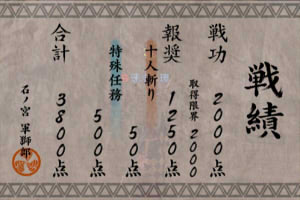 戦績
戦功 2000点
取得限界 2000
報奨 1250点
十人斬り 50点
特殊任務 500点
合計 3800点
石ノ宮 軍獅郎